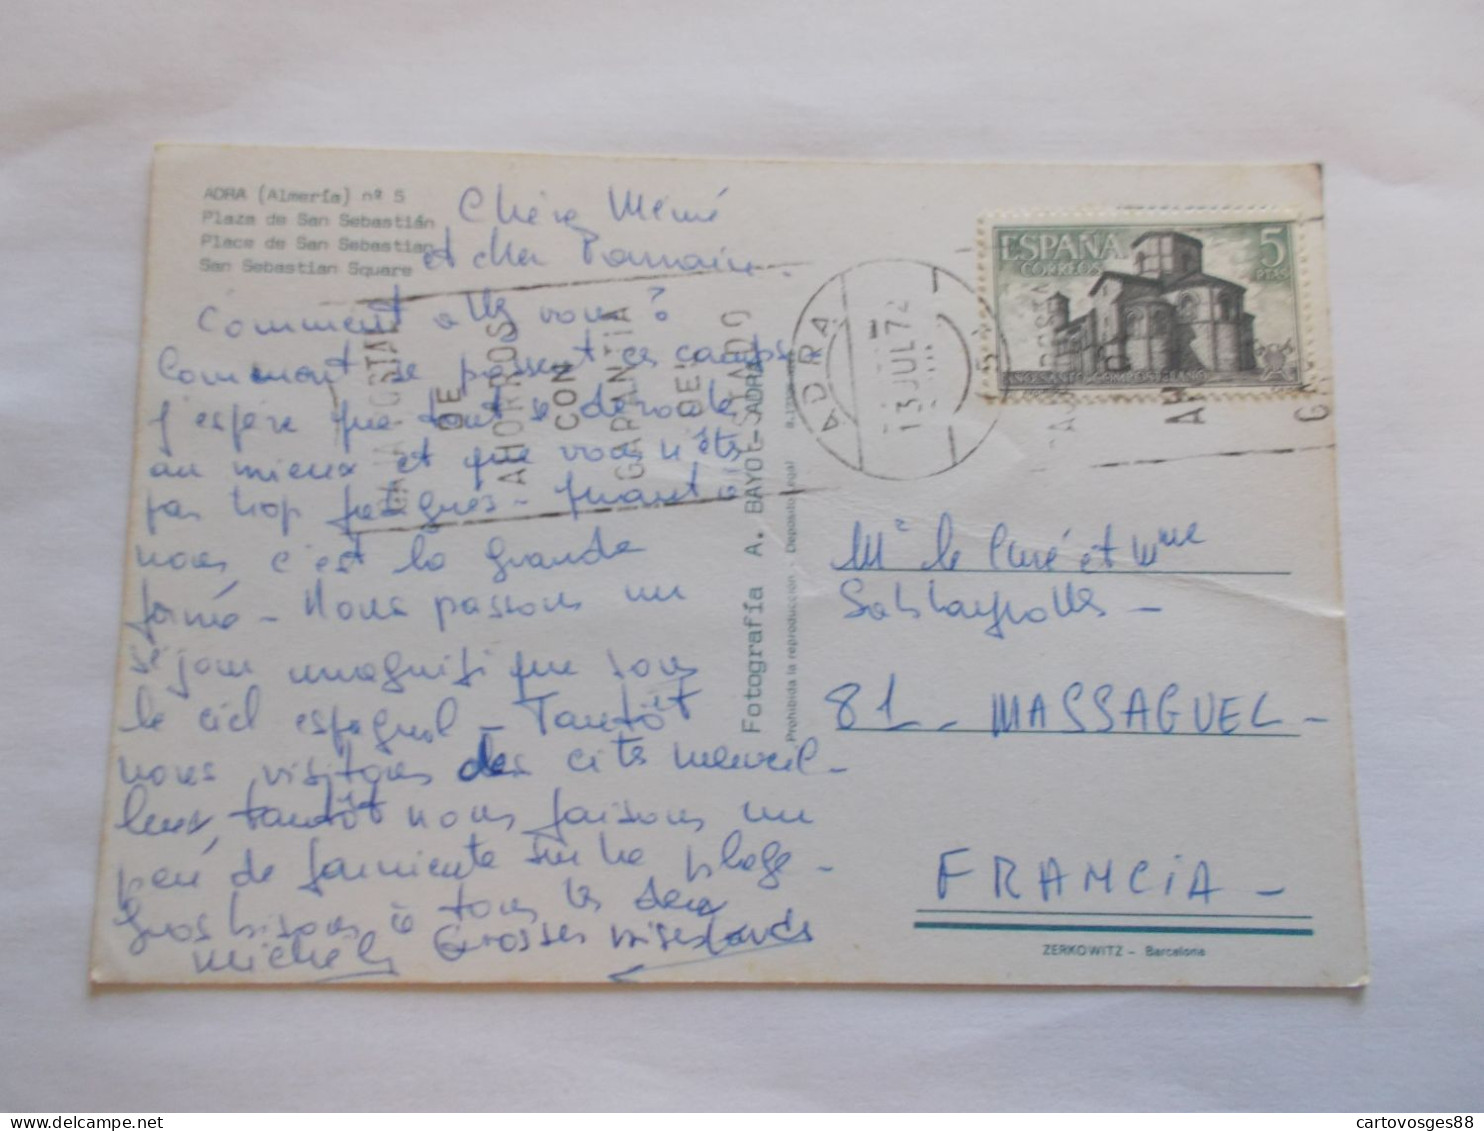 ADRA (Almería) nº 5
Plaza de San Sebastián
Place de San Sebastian
San Sebastian Square
Chère Mémé
et cher
Comment allez vous?
Comment se passent ces camps
J'espère que tout se déroule
au mieux et que vous n'êtes
pas trop fatigués - Quant à
nous c'est la grande
forme - Nous passons un
séjour magnifique sous
le ciel espagnol - Tantôt
nous visitons des cités merveil-
leuses, tantôt nous faisons un
peu de farniente sur la plage -
Gros bisous à tous les deux
Michèle Grosses bises
Fotografía A. BAYOT - ADRA
Prohibida la reproducción - Depósito Legal
CAJA POSTAL
DE
AHORROS
CON
GARANTIA
DEL
ESTADO
ADRA
13 JUL 72
ESPAÑA
CORREOS
5
PTAS
Mr le Curé et Mme
81 - MASSAGUEL -
FRANCIA -
ZERKOWITZ - Barcelona
delcampe.net
cartovosges88